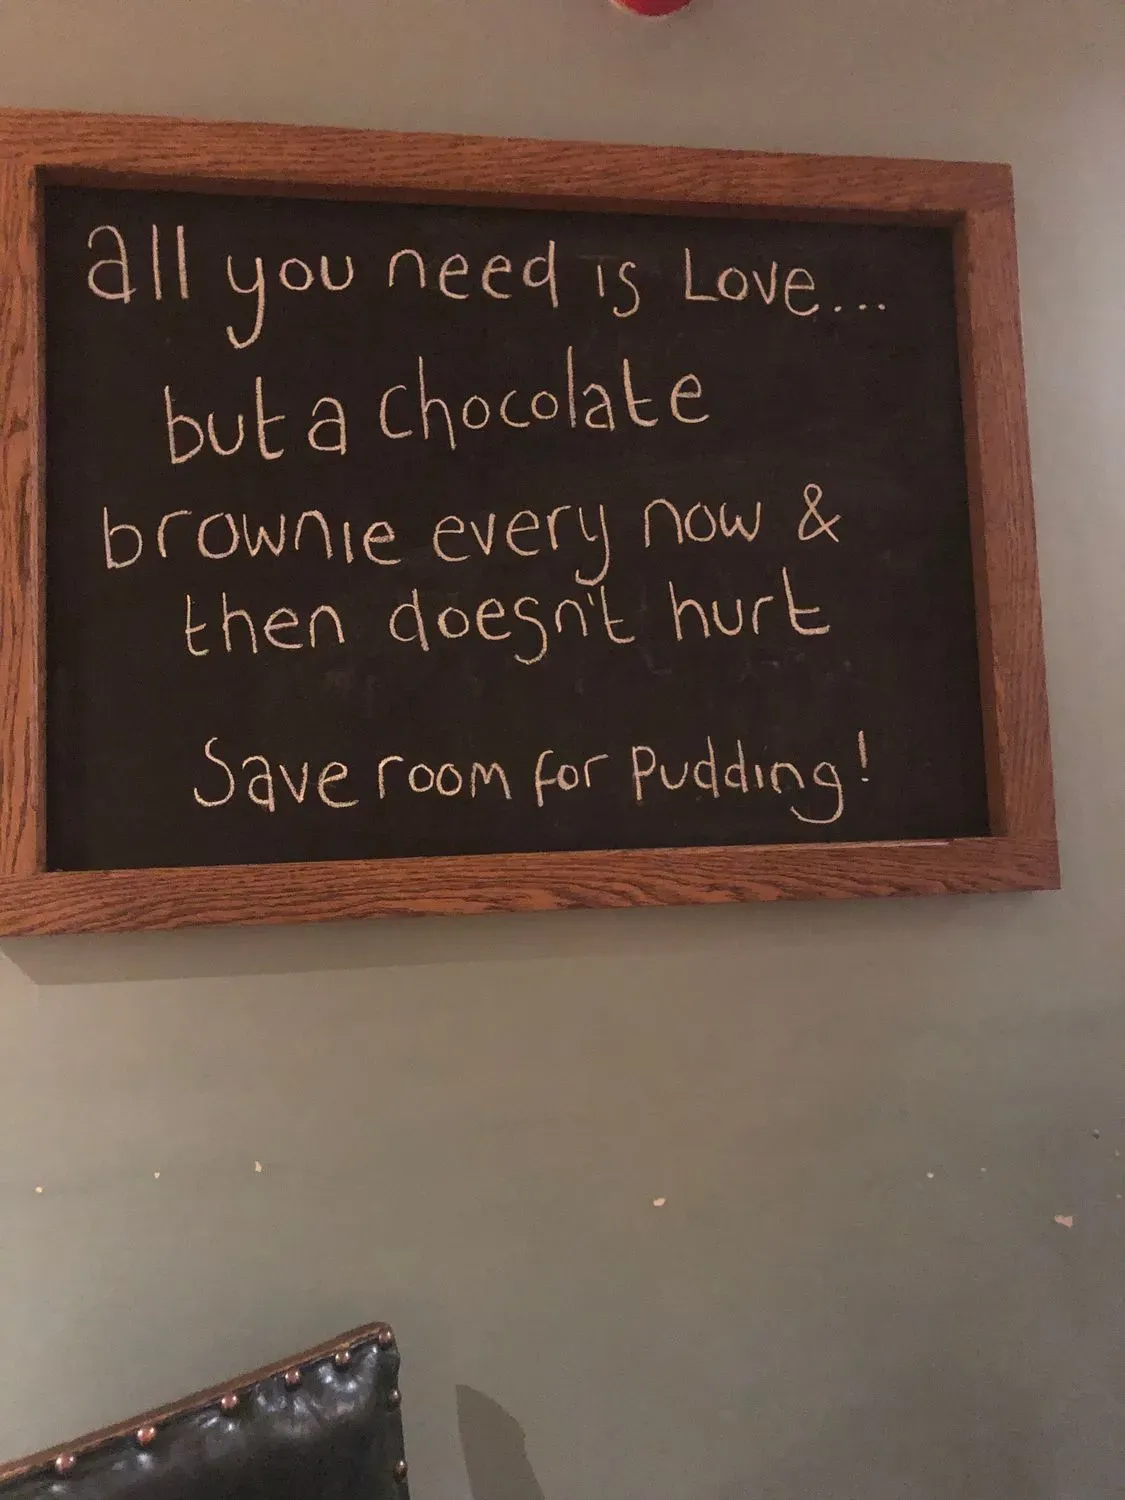 all you need is Love...
but a chocolate
brownie every now &
then doesn't hurt
Save room for Pudding!